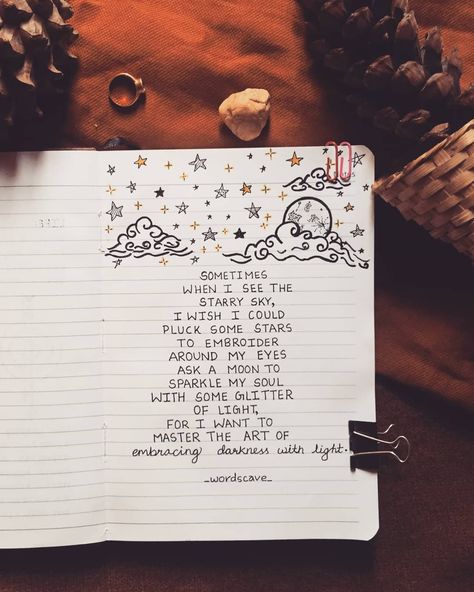 SOMETIMES
WHEN I SEE THE
STARRY SKY,
I WISH I COULD
PLUCK SOME STARS
TO EMBROIDER
AROUND MY EYES
ASK A MOON TO
SPARKLE MY SOUL
WITH SOME GLITTER
OF LIGHT,
FOR I WANT TO
MASTER THE ART OF
embracing darkness with light.
_wordscave_